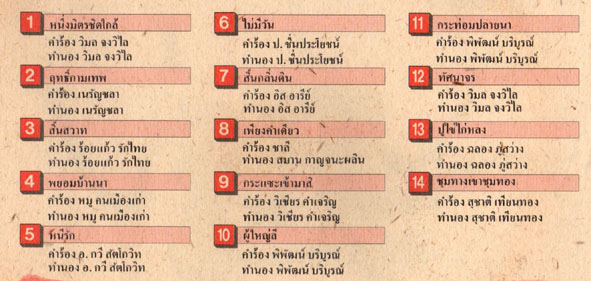 1 หนึ่งมิตรชิดใกล้
คำร้อง วิมล จงวิไล
ทำนอง วิมล จงวิไล
2 ฤทธิ์กามเทพ
คำร้อง เนรัญชลา
ทำนอง เนรัญชลา
3 สิ้นสวาท
คำร้อง ร้อยแก้ว รักไทย
ทำนอง ร้อยแก้ว รักไทย
4 พยอมบ้านนา
คำร้อง หมู คนเมืองเก่า
ทำนอง หมู คนเมืองเก่า
5 หนี้รัก
คำร้อง อ. กวี สัตโกวิท
ทำนอง อ. กวี สัตโกวิท
6 ไม่มีวัน
คำร้อง ป. ชื่นประโยชน์
ทำนอง ป. ชื่นประโยชน์
7 สิ้นกลิ่นดิน
คำร้อง อิส อารีย์
ทำนอง อิส อารีย์
8 เพียงคำเดียว
คำร้อง ชาลี
ทำนอง สมาน กาญจนะผลิน
9 กระแซะเข้ามาสิ
คำร้อง วิเชียร คำเจริญ
ทำนอง วิเชียร คำเจริญ
10 ผู้ใหญ่ลี
คำร้อง พิพัฒน์ บริบูรณ์
ทำนอง พิพัฒน์ บริบูรณ์
11 กระท่อมปลายนา
คำร้อง พิพัฒน์ บริบูรณ์
ทำนอง พิพัฒน์ บริบูรณ์
12 ทัศนาจร
คำร้อง วิมล จงวิไล
ทำนอง วิมล จงวิไล
13 ปูไข่ไก่หลง
คำร้อง ฉลอง ภู่สว่าง
ทำนอง ฉลอง ภู่สว่าง
14 ชุมทางเขาชุมทอง
คำร้อง สุชาติ เทียนทอง
ทำนอง สุชาติ เทียนทอง